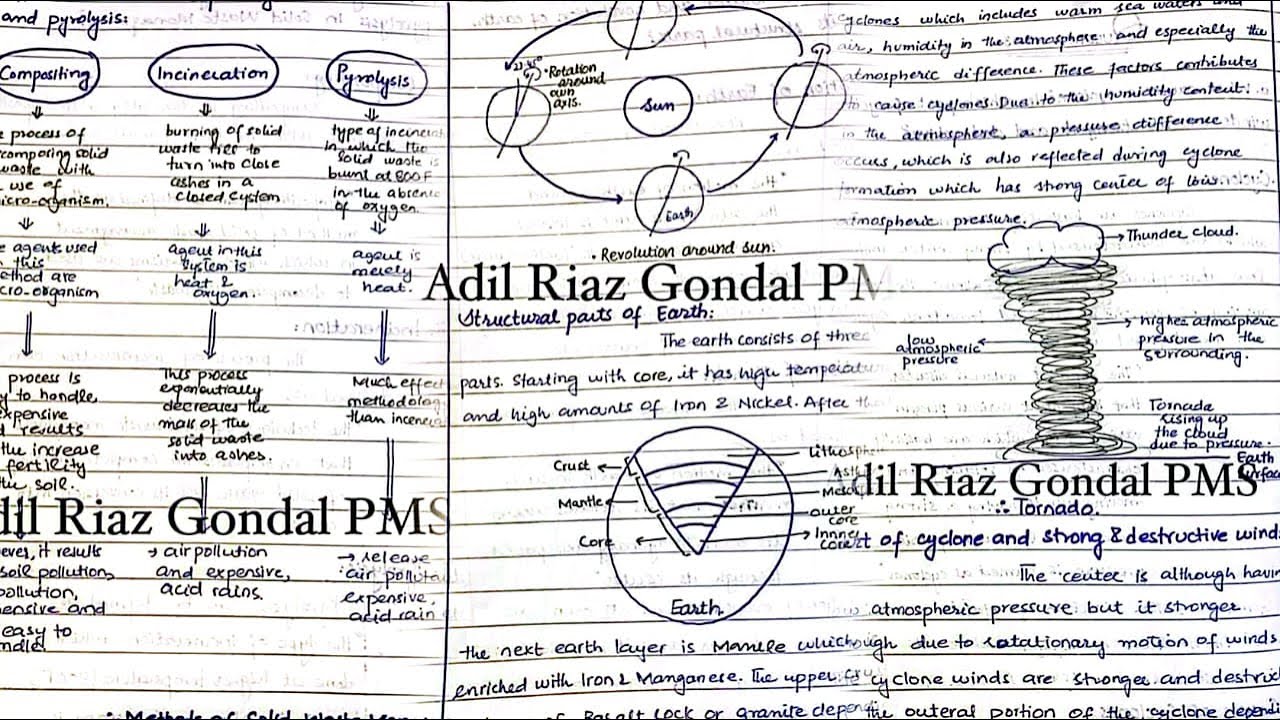 and pyrolysis:
Compositing
Incineration
Pyrolysis
process of
composing solid
waste with
use of
icro-organism.
burning of solid
waste
turn into close
ashes in a
closed system
type of incinerat
in which the
solid waste is
burnt at 800F
in the absence
of oxygen.
agent used
this
ethod are
cro-organism
agent in this
system is
heat &
oxygen.
agent is
merely
heat.
process is
y to handle
expensive
results
the increase
fertility
the soil.
This process
exponentially
decreases the
mass of the
solid waste
into ashes.
Much effect
methodolog
than incenera
dil Riaz Gondal PMS
ever, it results
soil pollution,
pollution,
ensive and
easy to
→ air pollution
and expensive,
acid rains.
→ release
air pollutan
expensive
acid rain
• Rotation
around
own
axis.
Sun
Earth
• Revolution around sun.
Adil Riaz Gondal PM
Structural parts of Earth:
The earth consists of three
parts. Starting with core, it has high temperatu
and high amounts of Iron & Nickel. After th
Crust
Mantle
Core
Lithosph
Asth
Meso
outer
core
Innner
core
Earth.
the next earth layer is Mantle which
enriched with Iron & Manganese. The upper
Basalt rock or granite
cyclones which includes warm sea waters and
air, humidity in the atmosphere and especially the
atmospheric difference. These factors contributes
to cause cyclones. Due to the humidity content
in the atmosphere, a pressure difference
occurs, which is also reflected during cyclone
formation which has strong center of low
atmospheric pressure.
Thunder cloud.
low
atmospheric
pressure
higher atmospheric
pressure in the
surrounding.
Tornado
rising up
the cloud
due to pressure.
Earth
surface
Adil Riaz Gondal PMS
∴ Tornado.
ct of cyclone and strong & destructive wind
The center is although havin
atmospheric pressure but it stronger
ugh due to rotationary motion of winds
cyclone winds are stronger and destruc
the outeral portion of the cyclone depend